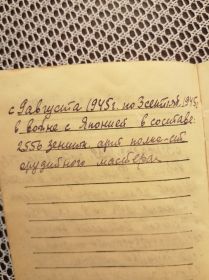 с 9 августа 1945г. по 3 сентября 1945
в войне с Японией в составе:
2556 зенит. арт полка – ст
орудийного мастера